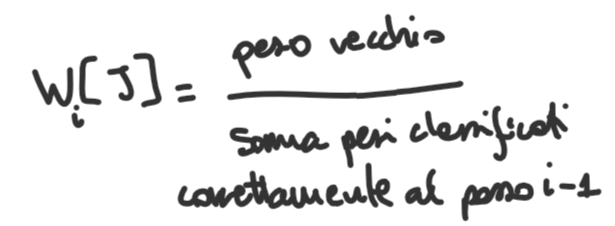 peso vecchio
W_i[J] =
Somma pesi classificati
correttamente al passo i-1